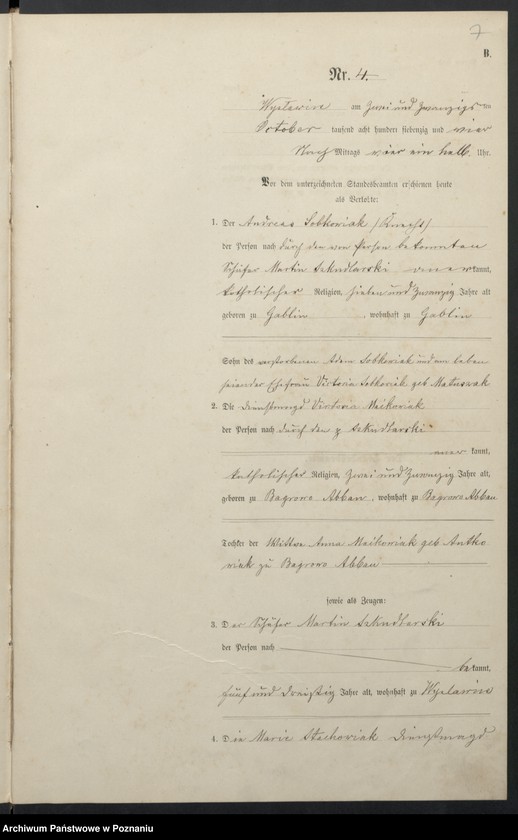 7
B.
Nr. 4.
am zwei und zwanzigs ten
October tausend acht hundert siebenzig und vier
Nach Mittags vier ein halb Uhr.
Vor dem unterzeichneten Standesbeamten erschienen heute
als Verlobte:
1. Der Andreas Sobkowiak (Knecht)
der Person nach durch den von Person bekannten
Schäfer Martin Szkudlarski kannt,
katholischer Religion, sieben und zwanzig Jahre alt
geboren zu Gablin, wohnhaft zu Gablin
Sohn des verstorbenen Adam Sobkowiak und am Leben
seiender Ehefrau Victoria Sobkowiak geb Matuswak
2. Die Dienstmagd Victoria Maikowiak
der Person nach durch den p Szkudlarski
aner kannt,
katholischer Religion, zwei und zwanzig Jahre alt,
geboren zu Bagrowo Abbau, wohnhaft zu Bagrowo Abbau
Tochter der Wittwe Anna Maikowiak geb Antko
wiak zu Bagrowo Abbau
sowie als Zeugen:
3. Der Schäfer Martin Szkudlarski
der Person nach
be kannt,
fünf und dreißig Jahre alt, wohnhaft zu
4. Die Marie Stachowiak Dienstmagd
Archiwum Państwowe w Poznaniu